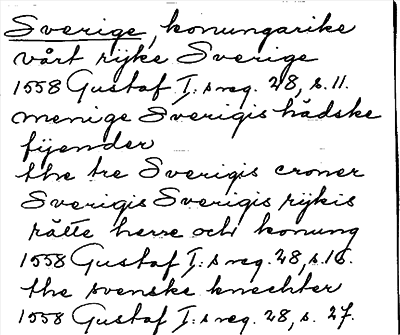 Sverige, konungarike
vårt rijke Sverige
1558 Gustaf I:s reg. 28, s. 11.
menige Sverigis hådske
fijender
the tre Sverigis croner
Sverigis Sverigis rijkis
rätte herre och konung
1558 Gustaf I:s reg. 28, s. 16.
the svenske knechter
1558 Gustaf I:s reg. 28, s. 27.